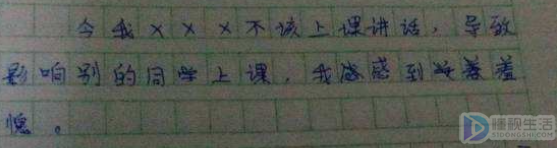 今我×××不该上课讲话，导致
影响别的同学上课，我感到羞
愧。
懂视生活
51DONGSHI.COM